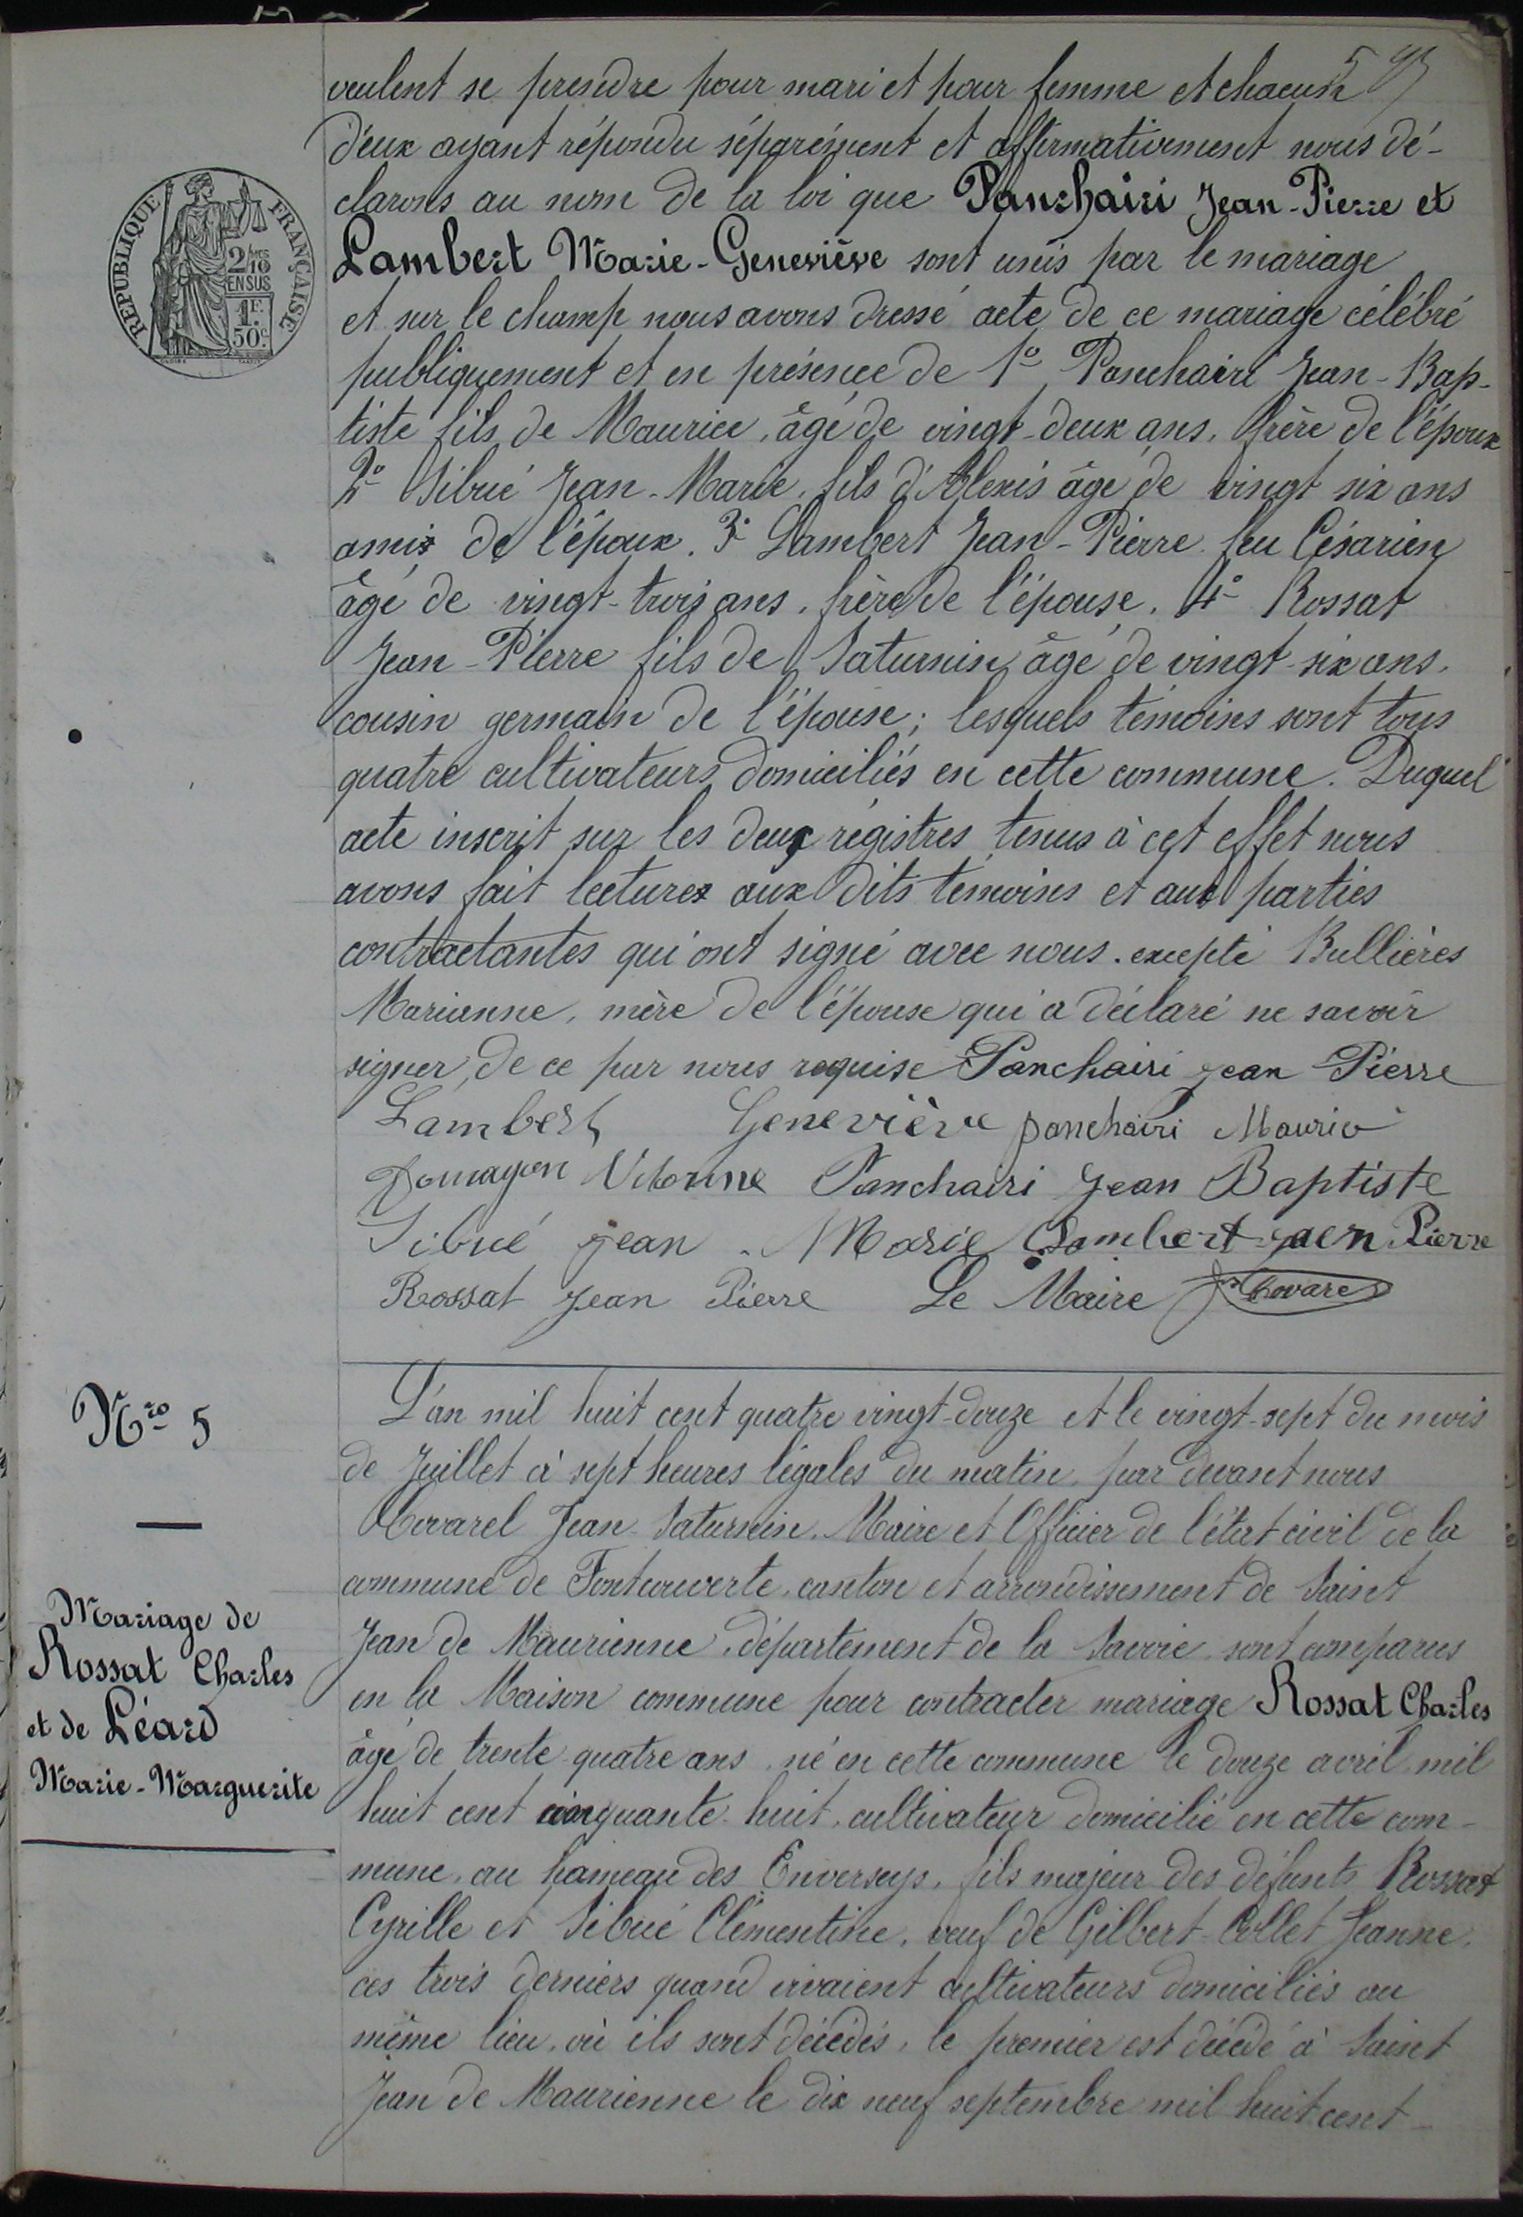 veulent se prendre pour mari et pour femme et chacun
d'eux ayant répondu séparément et affirmativement nous dé-
clarons au nom de la loi que Panchairi Jean-Pierre et
Lambert Marie-Geneviève sont unis par le mariage
et sur le champ nous avons dressé acte de ce mariage célébré
publiquement et en présence de 1° Panchairi Jean-Bap-
tiste fils de Maurice, âgé de vingt-deux ans, frère de l'époux
2° Sibué Jean-Marie, fils d'Alexis âgé de vingt six ans
amis de l'époux. 3° Lambert Jean-Pierre feu Césarien
âgé de vingt-trois ans, frère de l'épouse. 4° Rossat
Jean-Pierre fils de Saturnin âgé de vingt-six ans,
cousin germain de l'épouse; lesquels témoins sont tous
quatre cultivateurs domiciliés en cette commune. Duquel
acte inscrit sur les deux régistres tenus à cet effet nous
avons fait lecture aux dits témoins et aux parties
contractantes qui ont signé avec nous. excepté Bullières
Marianne, mère de l'épouse qui a déclaré ne savoir
signer, de ce par nous requise Panchairi jean Pierre
Lambert Geneviève panchairi Maurice
Panchairi Jean Baptiste
Sibué jean - Marie Lambert jaen Pierre
Rossat Jean Pierre Le Maire
REPUBLIQUE FRANÇAISE
2/10
EN SUS
1F.
50c.
Nro 5
Mariage de
Rossat Charles
et de Léard
Marie-Marguerite
L'an mil huit cent quatre vingt-douze et le vingt-sept du mois
de Juillet à sept heures légales du matin, par devant nous
Covarel Jean-Saturnin, Maire et Officier de l'état civil de la
commune de Fontcouverte, canton et arrondissement de Saint
Jean de Maurienne, département de la Savoie, sont comparus
en la Maison commune pour contracter mariage Rossat Charles
âgé de trente quatre ans, né en cette commune le douze avril mil
huit cent cinquante-huit, cultivateur domicilié en cette com-
mune, au hameau des Enverseys, fils majeur des défunts Rossat
Cyrille et Sibué Clémentine, veuf de Gilbert-Collet Jeanne,
ces trois derniers quand vivaient cultivateurs domiciliés au
même lieu, où ils sont décédés, le premier est décédé à Saint
Jean de Maurienne le dix neuf septembre mil huit cent